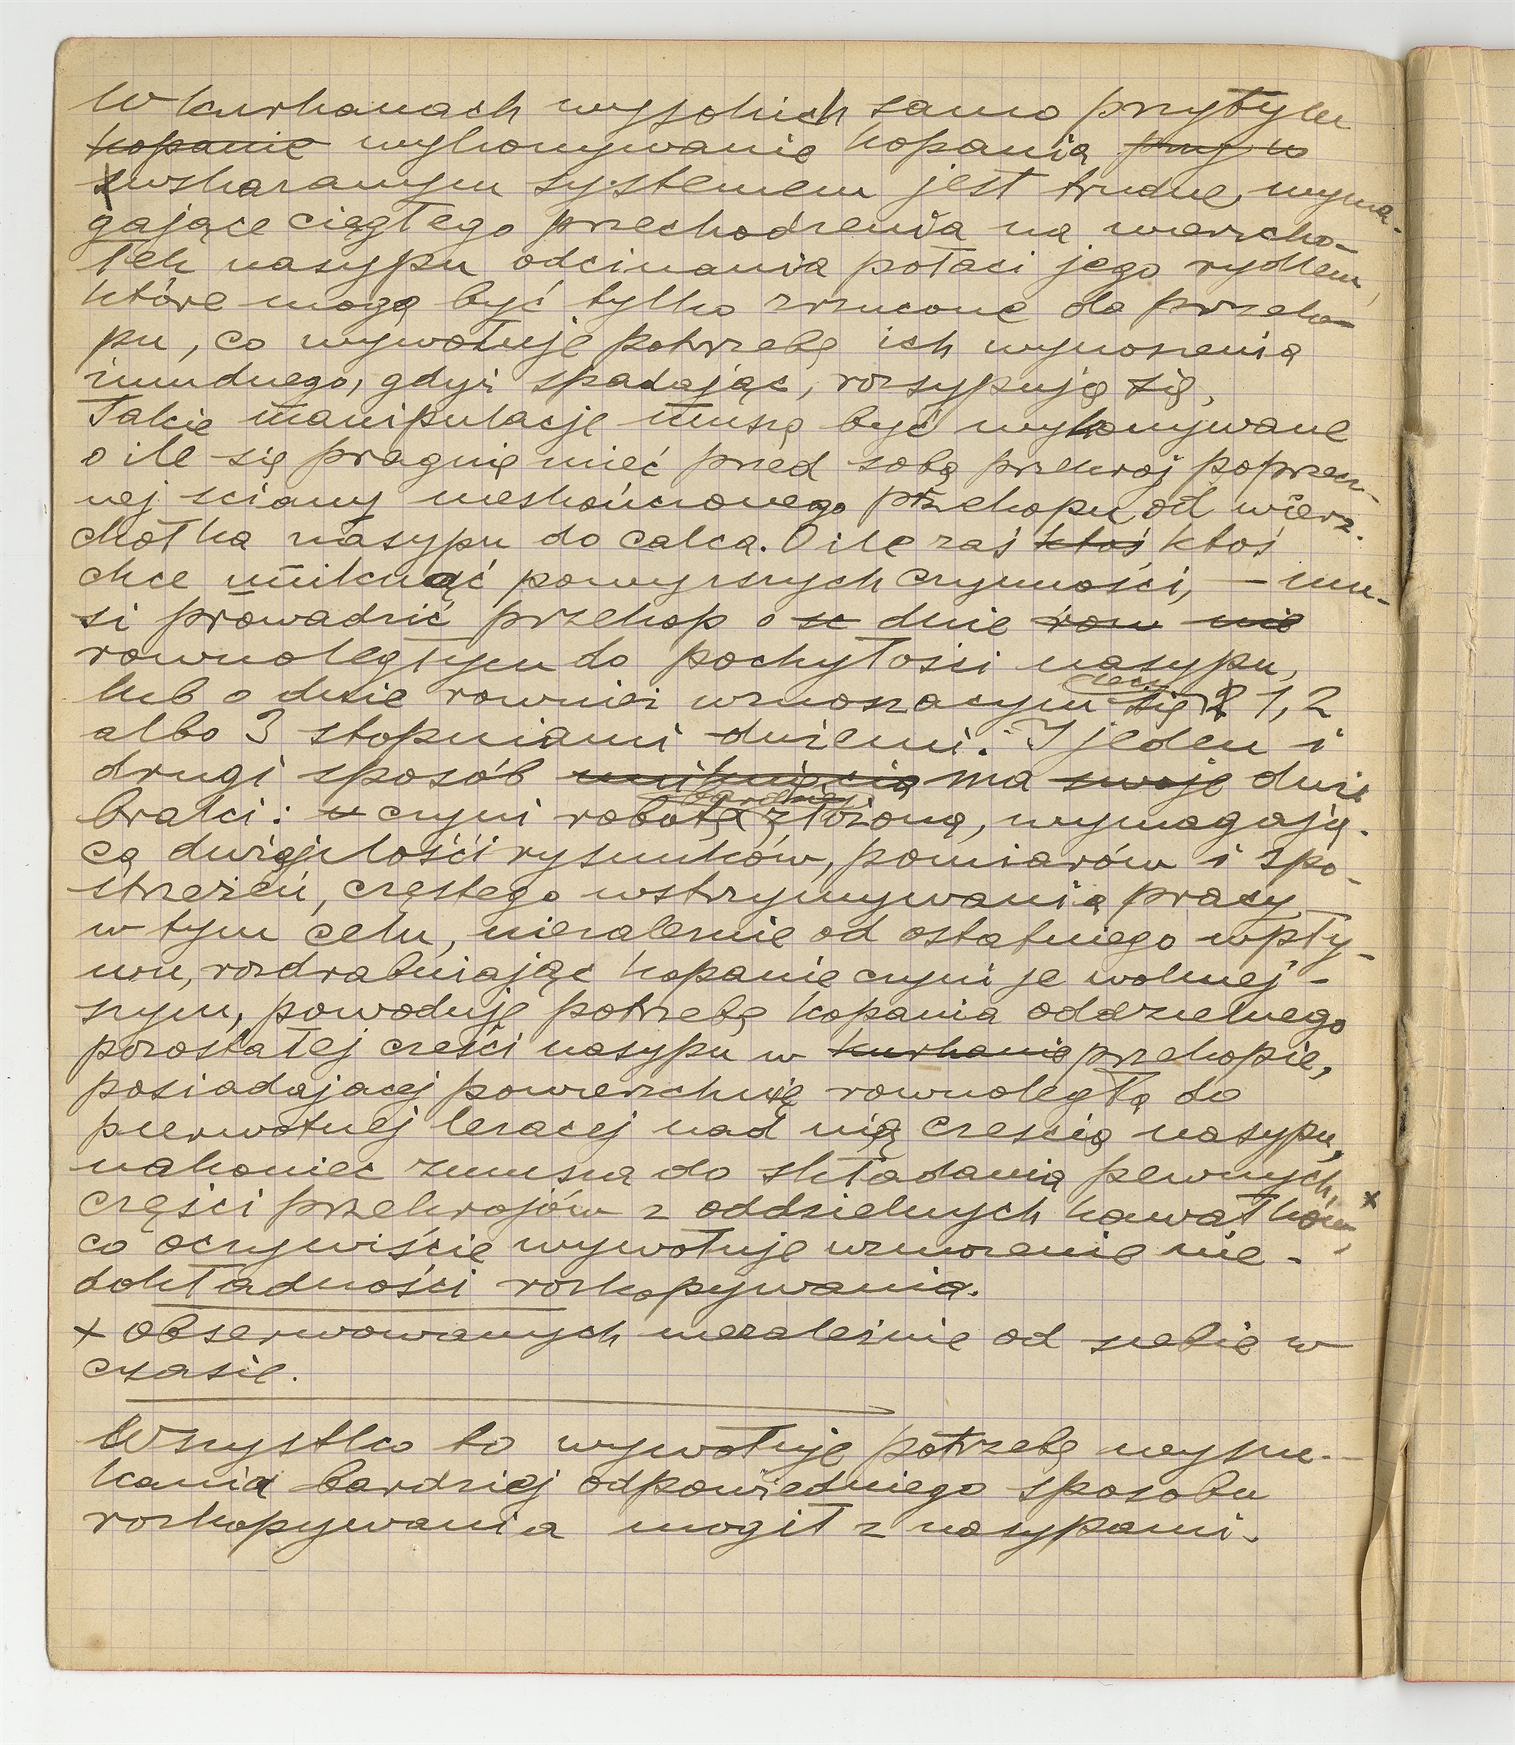 W kurhanach wysokich samo przytym
kopanie wykonywanie kopania przy w
wskazanym systemem jest trudne, wyma-
gające ciągłego przechodzenia na wierzcho-
łek nasypu odcinania połaci jego rydlem,
które mogą być tylko zrzucone do przeko-
pu, co wywołuje potrzebę ich wynoszenia
żmudnego, gdyż spadając, rozsypują się.
Takie manipulacje muszą być wykonywane
o ile się pragnie mieć przed sobą przekroj poprzecz-
nej sciany nieskończonego przekopu od wierz-
chołka nasypu do calca. O ile zaś ktoś ktoś
chce uniknąć powyzszych czynności, — mu-
si prowadzić przekop o sc dnie row nie
rownoległym do pochyłości nasypu,
lub o dnie rownież wznoszacym się lecz 1, 2
albo 3 stopniami dużemi. I jeden i
drugi sposób uniknięcia ma swoje duże
braki: u czyni robotę bardziej złożoną, wymagają-
cą dużej ilości rysunków, pomiarów i spo-
strzeżeń, częstego wstrzymywania pracy
w tym celu, niezależnie od ostatniego wpły-
wu, rozdrabniając kopanie czyni je wolniej-
szym, powoduje potrzebę kopania oddzielnego
pozostałej cześci nasypu w kurhanie przekopie,
posiadajacej powierzchnię rownoległą do
pierwotnej lezacej nad nią cześcią nasypu,
nakoniec zmusza do składania pewnych
części przekrojów z oddzielnych kawałków, x
co oczywiście wywołuje wzmozenie nie-
dokładności rozkopywania.
x obserwowanych niezależnie od siebie w
czasie.
Wszystko to wywołuje potrzebę wyszu-
kania bardziej odpowiedniego sposobu
rozkopywania mogił z nasypami.